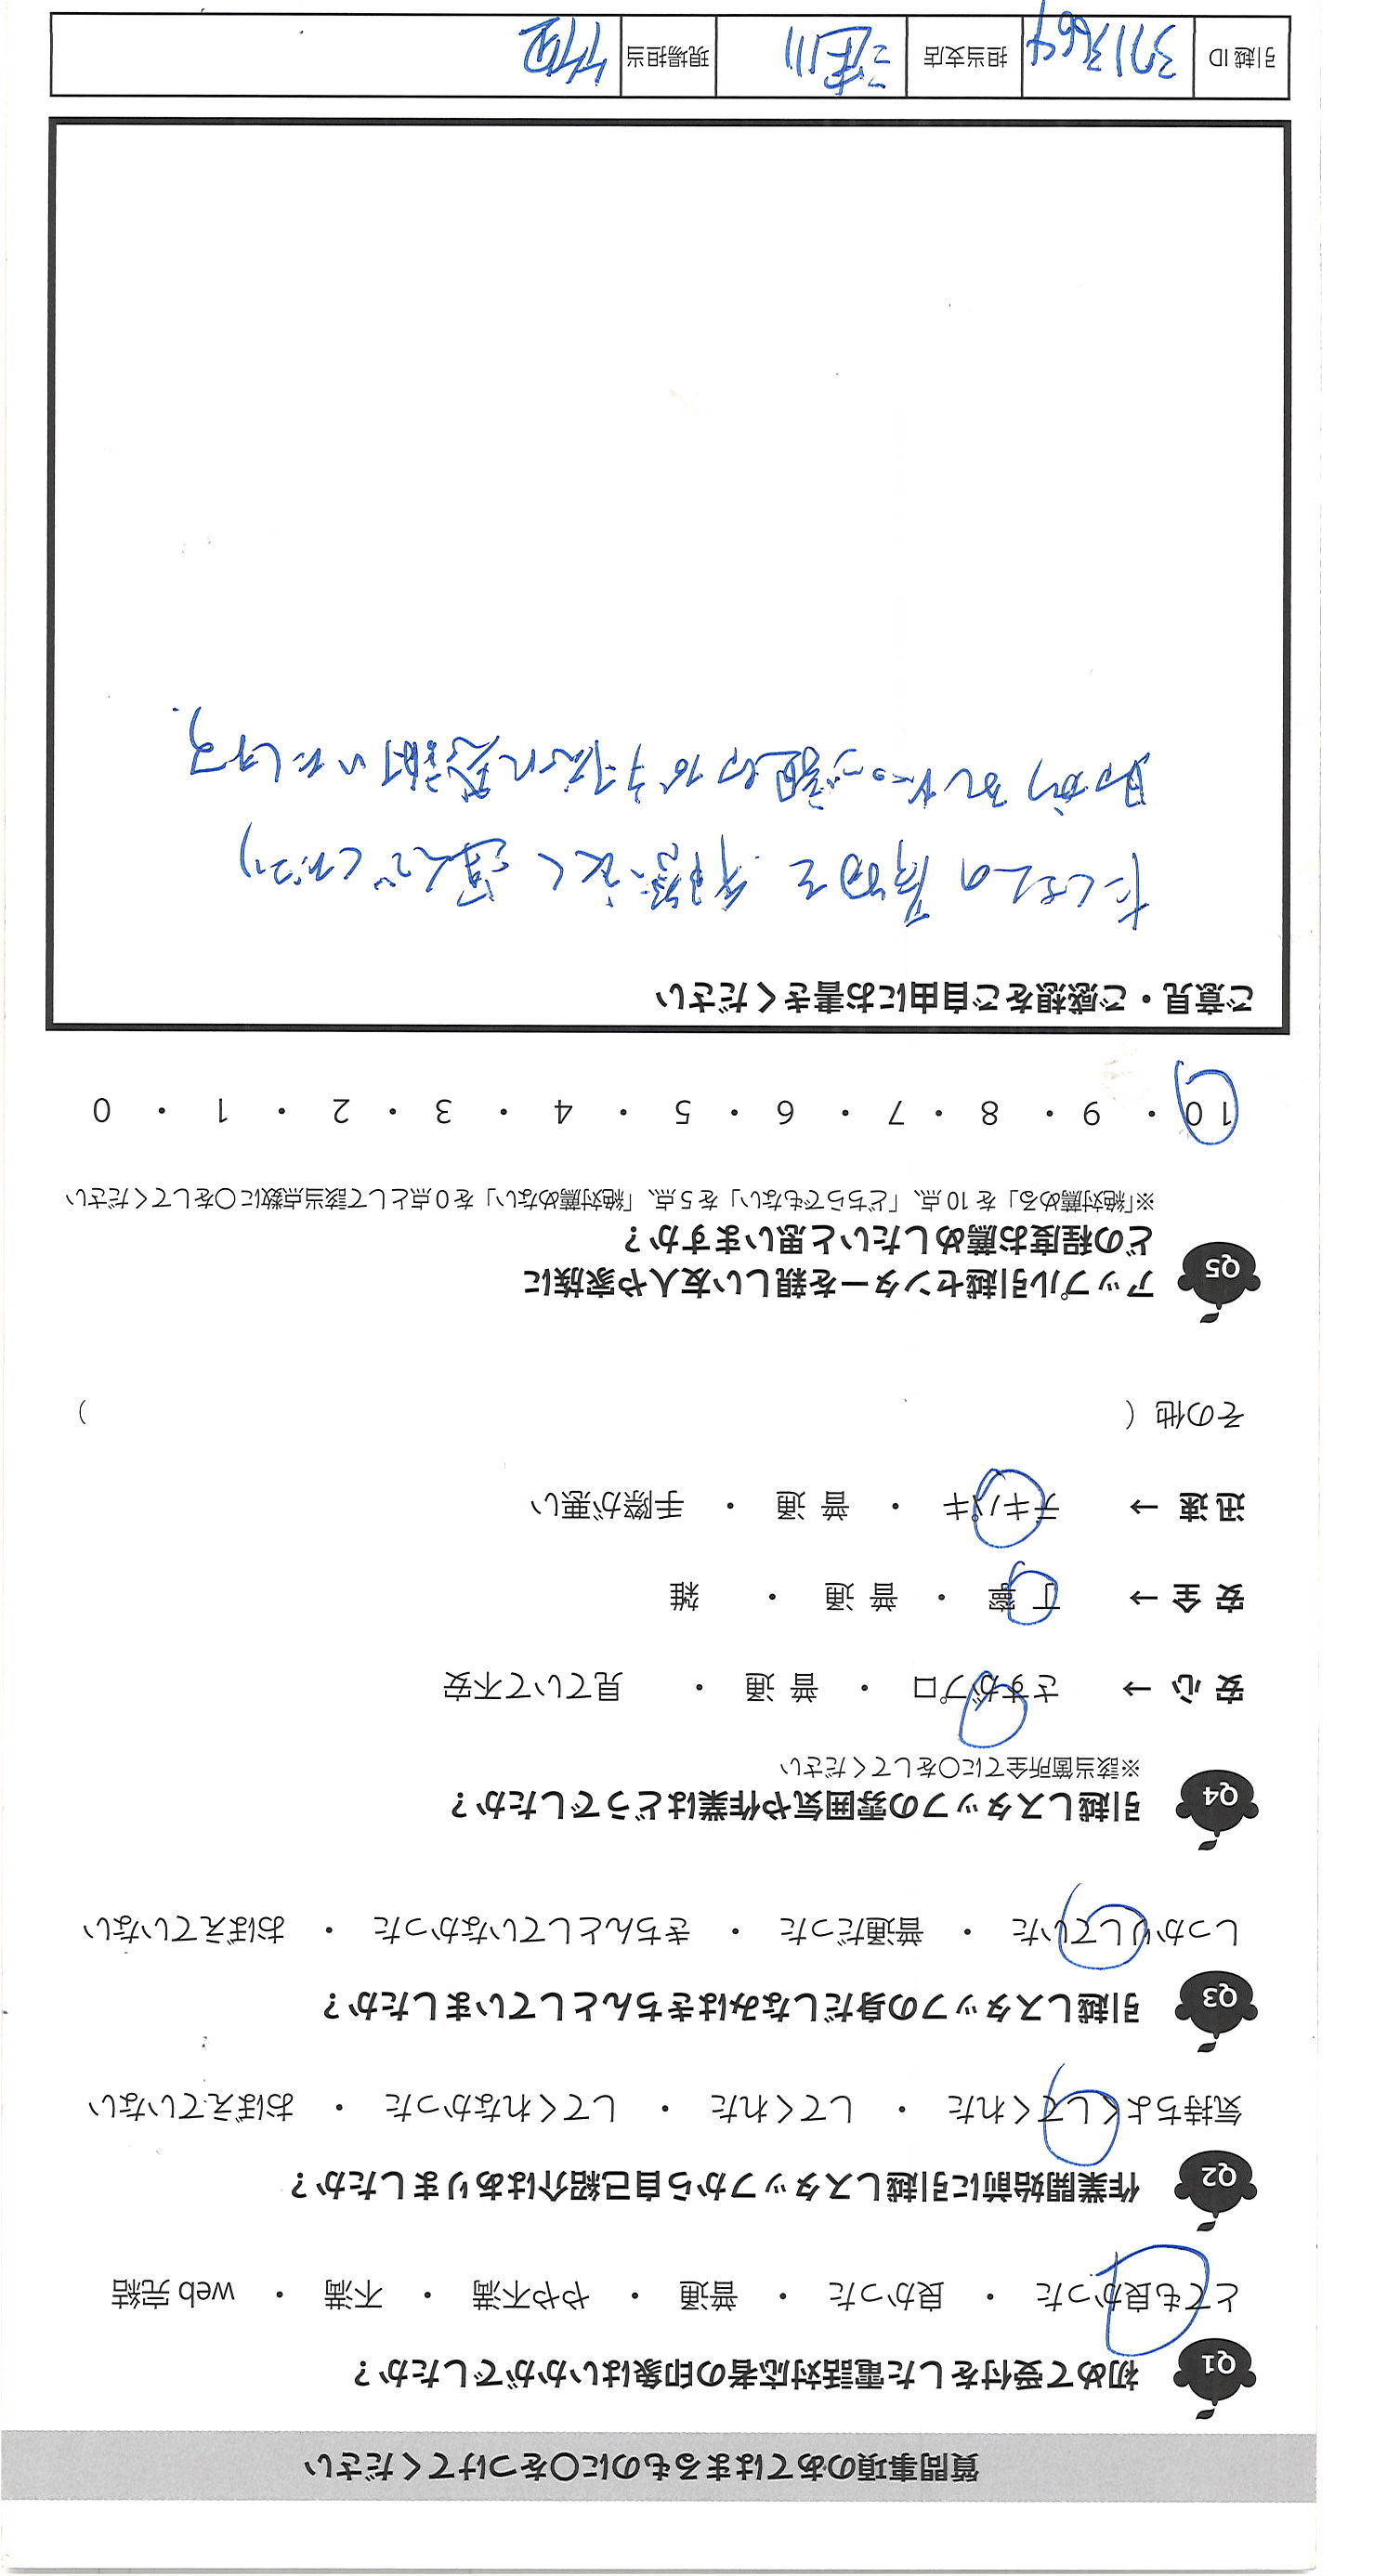 質問事項のあてはまるものに○をつけてください
Q1 初めて受付をした電話対応者の印象はいかがでしたか？
とても良かった ・ 良かった ・ 普通 ・ やや不満 ・ 不満 ・ web 完結
Q2 作業開始前に引越しスタッフから自己紹介はありましたか？
気持ちよくしてくれた ・ してくれた ・ してくれなかった ・ おぼえていない
Q3 引越しスタッフの身だしなみはきちんとしていましたか？
しっかりしていた ・ 普通だった ・ きちんとしていなかった ・ おぼえていない
Q4 引越しスタッフの雰囲気や作業はどうでしたか？
※該当箇所全てに○をしてください
安 心 → さすがプロ ・ 普 通 ・ 見ていて不安
安 全 → 丁 寧 ・ 普 通 ・ 雑
迅 速 → テキパキ ・ 普 通 ・ 手際が悪い
その他（ ）
Q5 アップル引越センターを親しい友人や家族に
どの程度お薦めしたいと思いますか？
※「絶対薦める」を 10 点、「どちらでもない」を 5 点、「絶対薦めない」を 0 点として該当点数に○をしてください
10 ・ 9 ・ 8 ・ 7 ・ 6 ・ 5 ・ 4 ・ 3 ・ 2 ・ 1 ・ 0
ご意見・ご感想をご自由にお書きください
たくさんの荷物を手際よく運んでくださり
助かりました。ご親切な対応に感謝いたします。
引越 ID 3713664 担当支店 現場担当